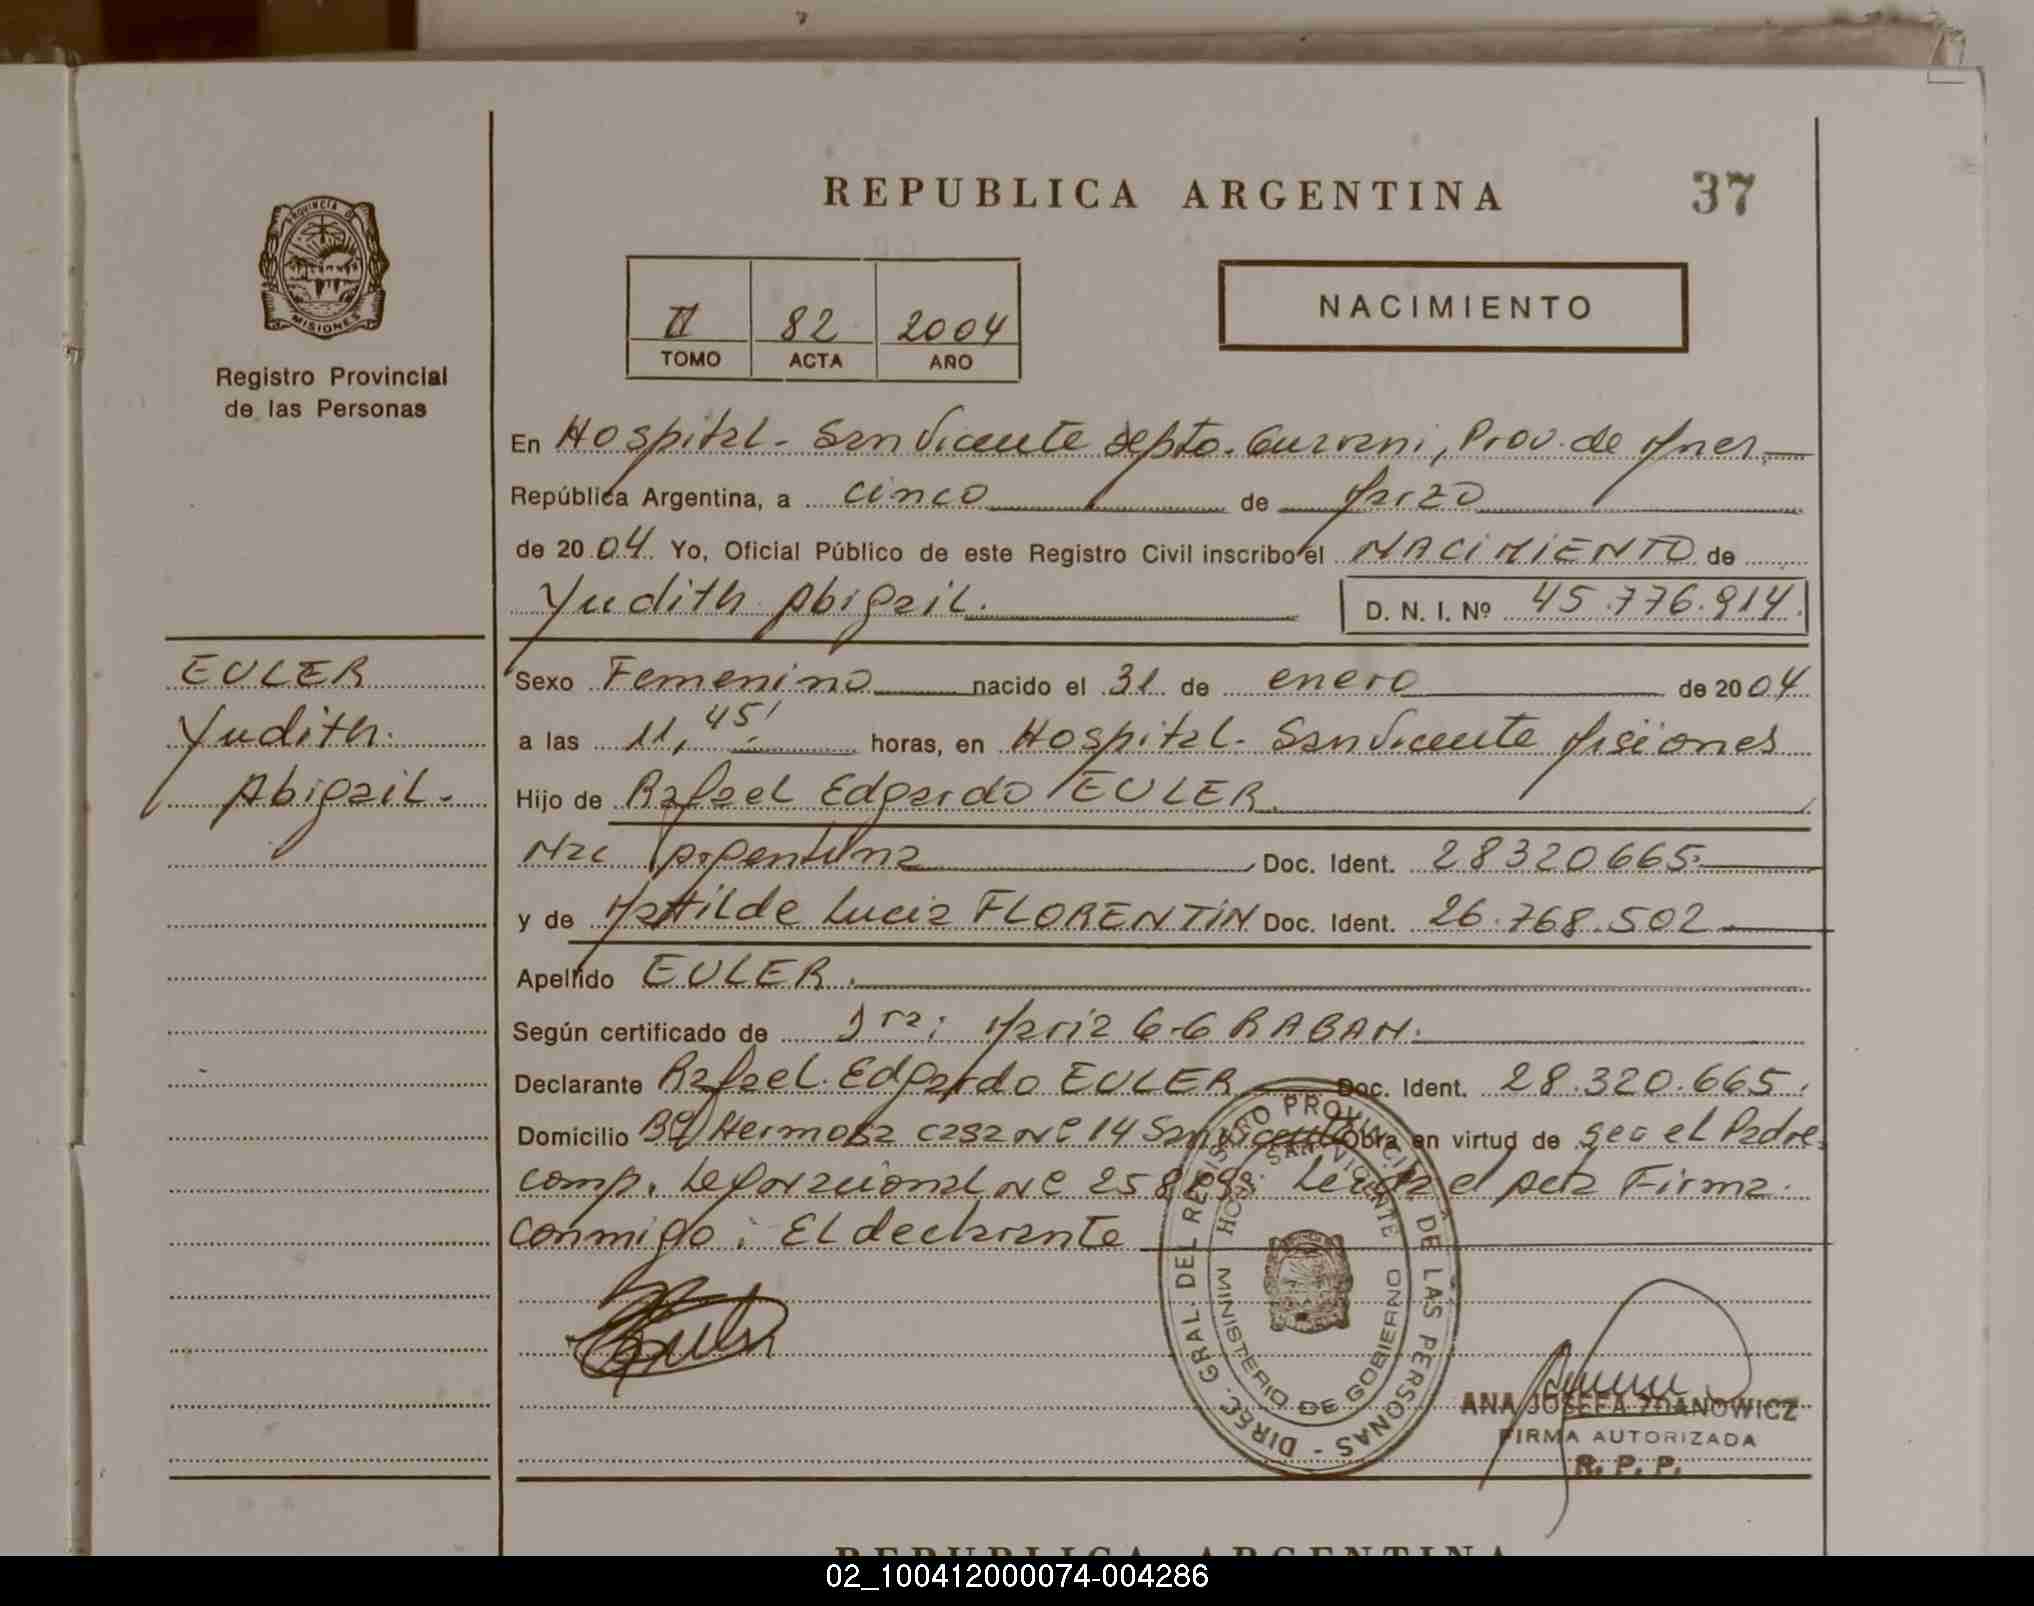 REPUBLICA ARGENTINA
37
PROVINCIA DE
MISIONES
Registro Provincial
de las Personas
II 82 2004
TOMO ACTA AÑO
NACIMIENTO
En Hospital - San Vicente depto. Guarani, Prov. de Mnes.
República Argentina, a cinco de Marzo
de 2004. Yo, Oficial Público de este Registro Civil inscribo el NACIMIENTO de
Yudith Abigail.
D. N. I. Nº 45.776.914.
EULER
Yudith
Abigail.
Sexo Femenino nacido el 31 de enero de 2004
a las 11,45' horas, en Hospital - San Vicente Misiones
Hijo de Rafael Edgardo EULER.
Nac Argentina Doc. Ident. 28320665.
y de Matilde Lucia FLORENTIN Doc. Ident. 26.768.502
Apellido EULER.
Según certificado de Dra: Maria G. G RABAN.
Declarante Rafael Edgardo EULER Doc. Ident. 28.320.665.
Domicilio Bº Hermosa casa Nº 14 San Vicente Obra en virtud de ser el Padre
comp. Leida el acta Firma
conmigo: El declarante
DIREC. GRAL. DEL REGISTRO PROVINCIAL DE LAS PERSONAS -
HOSP. SAN VICENTE
MINISTERIO DE GOBIERNO
ANA JOSEFA ZDANOWICZ
FIRMA AUTORIZADA
R. P. P.
REPUBLICA ARGENTINA
02_100412000074-004286